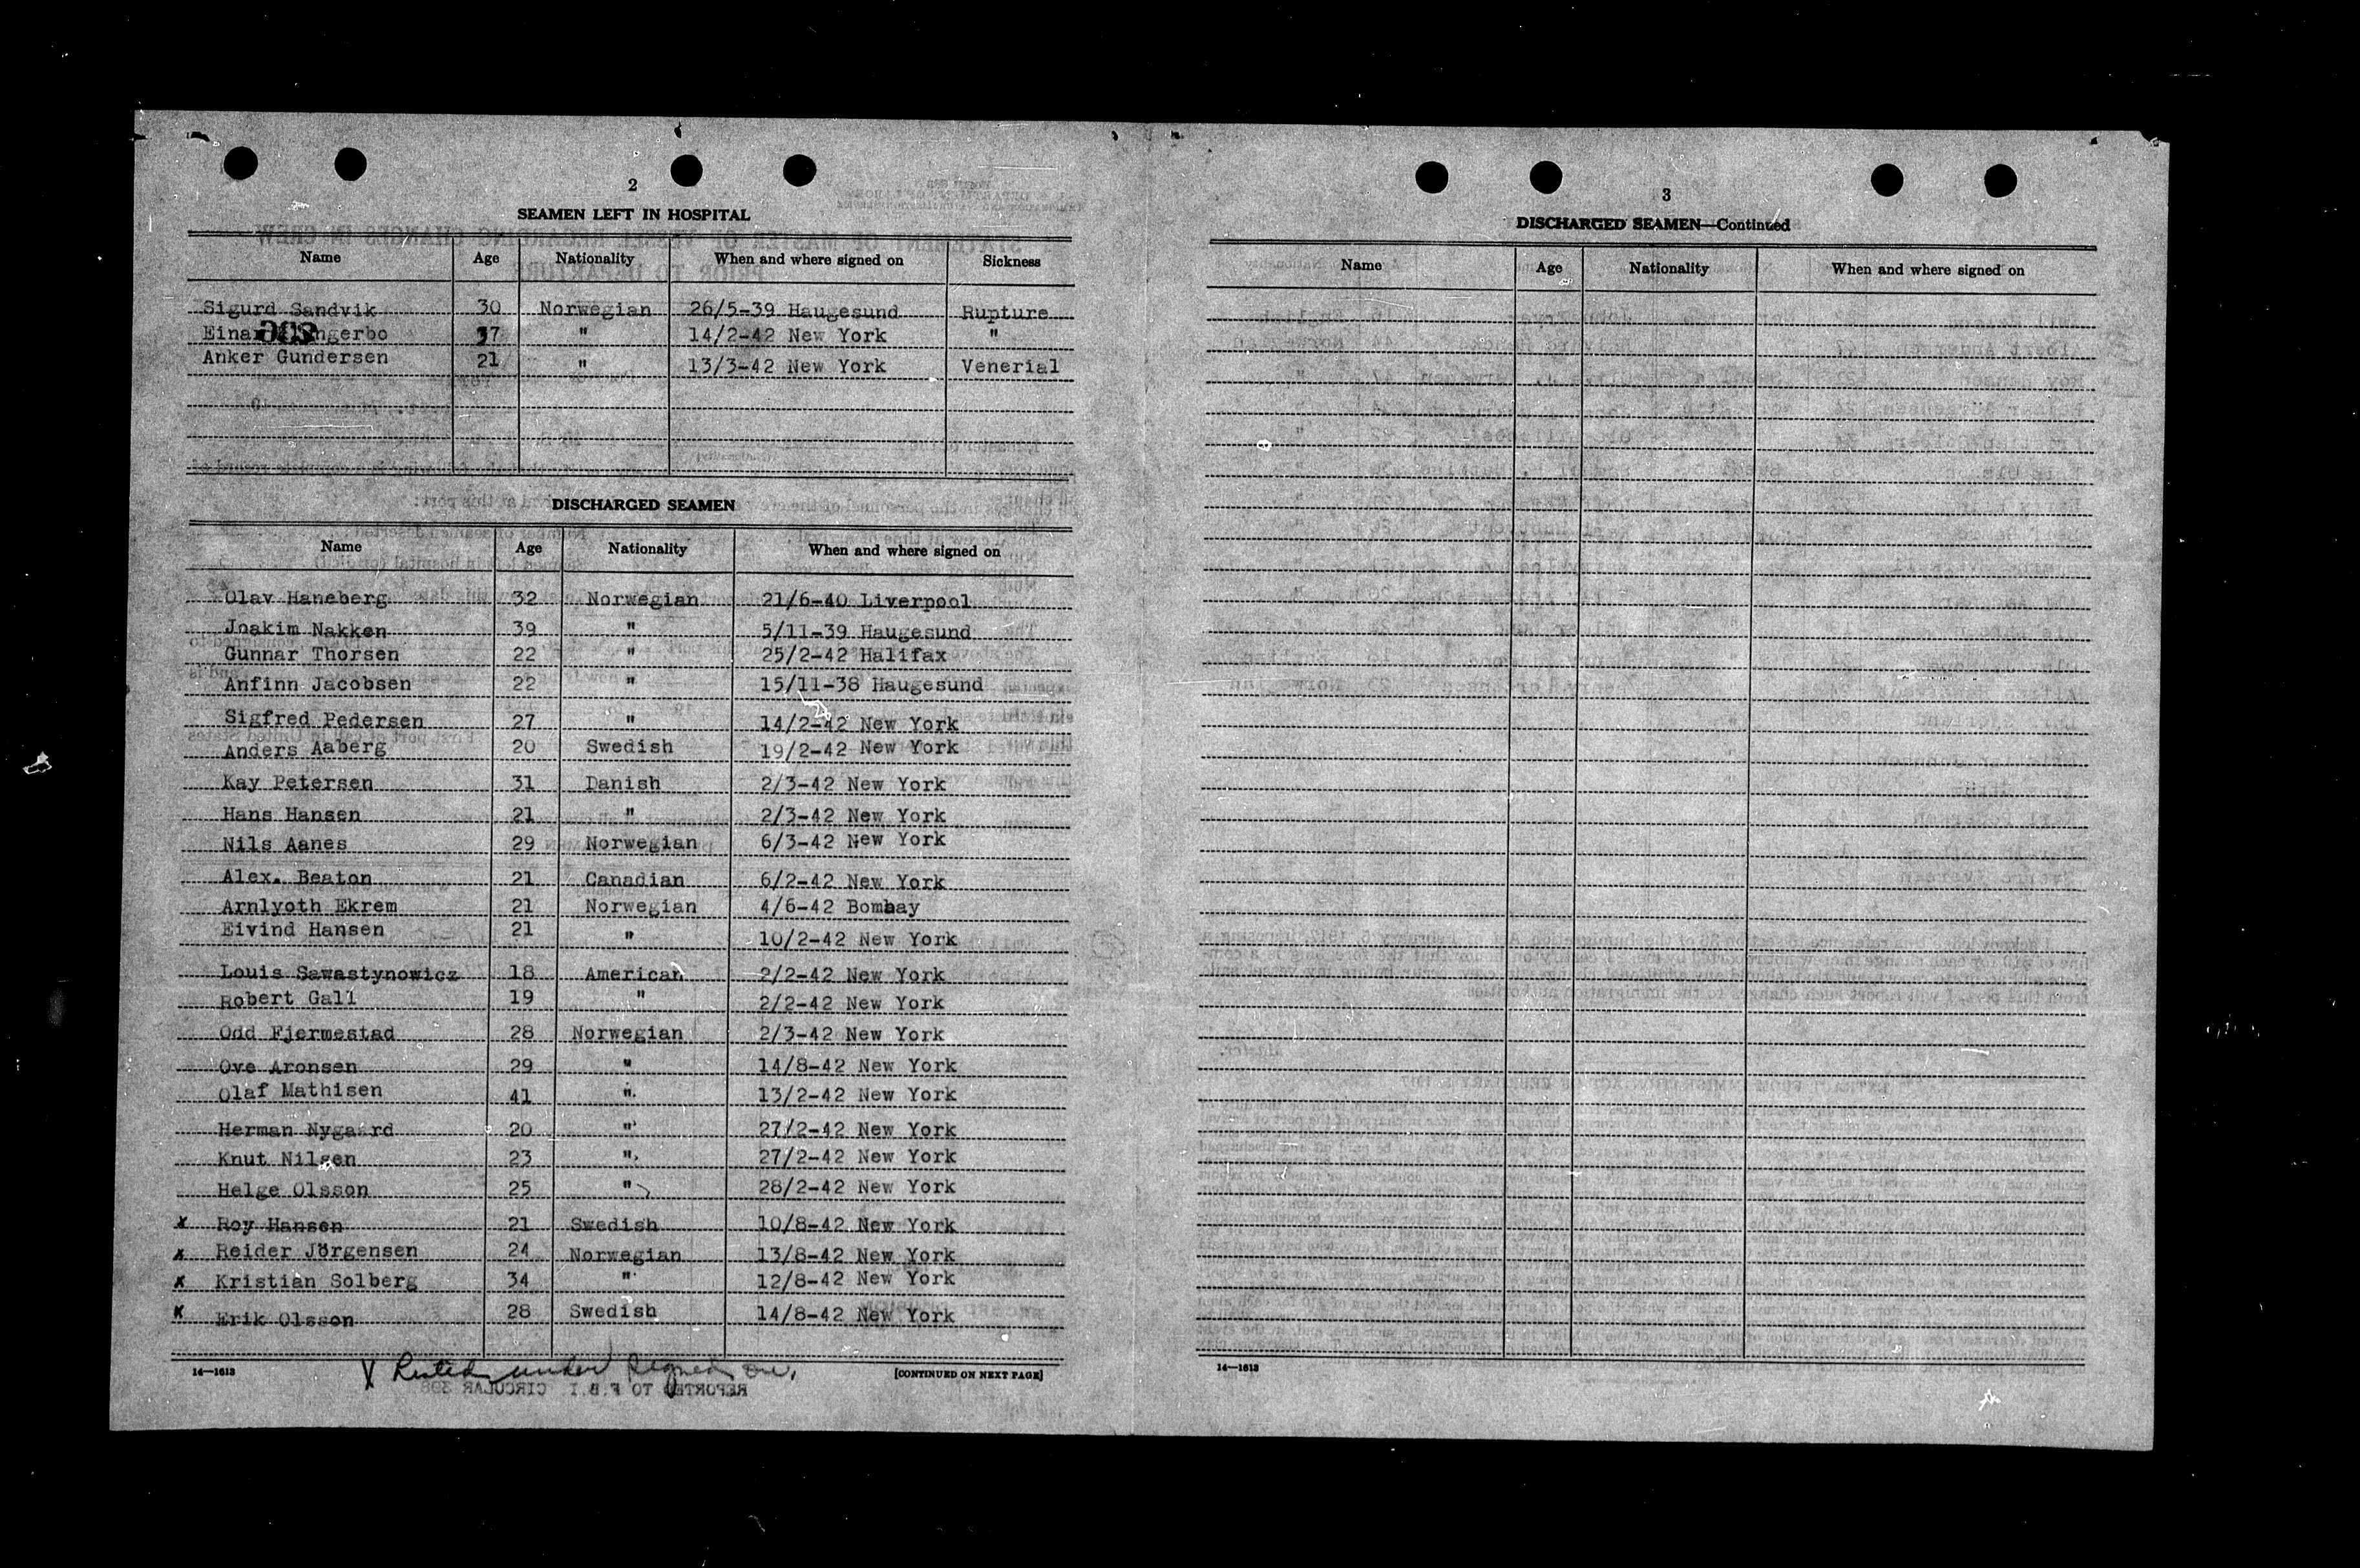 2
SEAMEN LEFT IN HOSPITAL
Name Age Nationality When and where signed on Sickness
Sigurd Sandvik 30 Norwegian 26/5-39 Haugesund Rupture
37 " 14/2-42 New York "
Anker Gundersen 21 " 13/3-42 New York Venerial
DISCHARGED SEAMEN
Name Age Nationality When and where signed on
Olav Haneberg 32 Norwegian 21/6-40 Liverpool
Joakim Nakken 39 " 5/11-39 Haugesund
Gunnar Thorsen 22 " 25/2-42 Halifax
Anfinn Jacobsen 22 " 15/11-38 Haugesund
Sigfred Pedersen 27 " 14/2-42 New York
Anders Aaberg 20 Swedish 19/2-42 New York
Kay Petersen 31 Danish 2/3-42 New York
Hans Hansen 21 " 2/3-42 New York
Nils Aanes 29 Norwegian 6/3-42 New York
Alex. Beaton 21 Canadian 6/2-42 New York
Arnlyoth Ekrem 21 Norwegian 4/6-42 Bombay
Eivind Hansen 21 " 10/2-42 New York
Louis Sawastynowicz 18 American 2/2-42 New York
Robert Gall 19 " 2/2-42 New York
Odd Fjermestad 28 Norwegian 2/3-42 New York
Ove Aronsen 29 " 14/8-42 New York
Olaf Mathisen 41 " 13/2-42 New York
Herman Nygaard 20 " 27/2-42 New York
Knut Nilsen 23 " 27/2-42 New York
Helge Olsson 25 " 28/2-42 New York
x Roy Hansen 21 Swedish 10/8-42 New York
x Reider Jörgensen 24 Norwegian 13/8-42 New York
x Kristian Solberg 34 " 12/8-42 New York
x Erik Olsson 28 Swedish 14/8-42 New York
14—1613 [CONTINUED ON NEXT PAGE]
X Listed under signed on.
REPORTED TO F.B.I. CIRCULAR 398
3
DISCHARGED SEAMEN—Continued
Name Age Nationality When and where signed on
14—1613